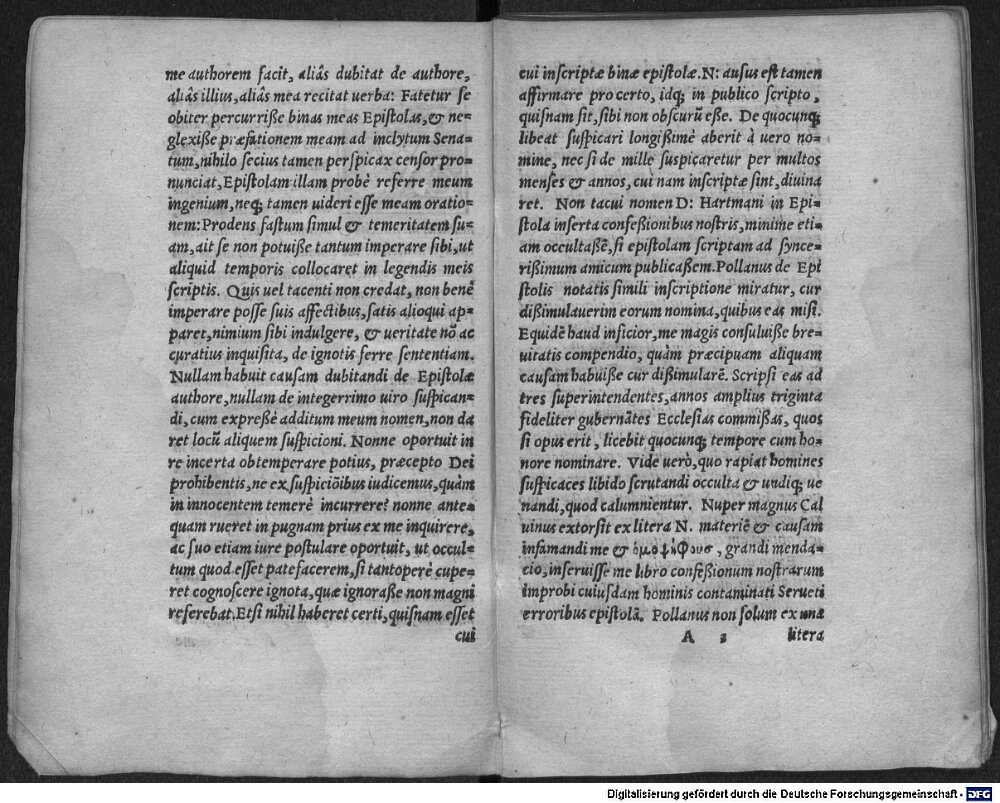 me authorem facit, aliâs dubitat de authore,
aliâs illius, aliâs mea recitat uerba: Fatetur se
obiter percurriße binas meas Epistolas, & ne-
glexiße præfationem meam ad inclytum Sena-
tum, nihilo secius tamen perspicax censor pro-
nunciat, Epistolam illam probè referre meum
ingenium, neq; tamen uideri esse meam oratio-
nem: Prodens fastum simul & temeritatem su-
am, ait se non potuiße tantum imperare sibi, ut
aliquid temporis collocaret in legendis meis
scriptis. Quis uel tacenti non credat, non benè
imperare posse suis affectibus, satis alioqui ap-
paret, nimium sibi indulgere, & ueritate nõ ac
curatius inquisita, de ignotis ferre sententiam.
Nullam habuit causam dubitandi de Epistolæ
authore, nullam de integerrimo uiro suspican-
di, cum expreßè additum meum nomen, non da
ret locũ aliquem suspicioni. Nonne oportuit in
re incerta obtemperare potius, præcepto Dei
prohibentis, ne ex suspiciõibus iudicemus, quàm
in innocentem temerè incurrere? nonne ante-
quam rueret in pugnam prius ex me inquirere,
ac suo etiam iure postulare oportuit, ut occul-
tum quod esset patefacerem, si tantoperè cupe-
ret cognoscere ignota, quæ ignoraße non magni
referebat. Etsi nihil haberet certi, quisnam esset
cui
cui inscriptæ binæ epistolæ. N: ausus est tamen
affirmare pro certo, idq; in publico scripto,
quisnam sit, sibi non obscurũ eße. De quocunq;
libeat suspicari longißimè aberit à uero no-
mine, nec si de mille suspicaretur per multos
menses & annos, cui nam inscriptæ sint, diuina
ret. Non tacui nomen D: Hartmani in Epi-
stola inserta confeßionibus nostris, minime eti-
am occultaßẽ, si epistolam scriptam ad synce-
rißimum amicum publicaßem. Pollanus de Epi
stolis notatis simili inscriptione miratur, cur
dißimulauerim eorum nomina, quibus eas misi.
Equidẽ haud inficior, me magis consuluiße bre-
uitatis compendio, quàm præcipuam aliquam
causam habuiße cur dißimularẽ. Scripsi eas ad
tres superintendentes, annos amplius triginta
fideliter gubernãtes Ecclesias commißas, quos
si opus erit, licebit quocunq; tempore cum ho-
nore nominare. Vide uerò, quo rapiat homines
suspicaces libido scrutandi occulta & undiq; ue
nandi, quod calumnientur. Nuper magnus Cal
uinus extorsit ex litera N. materiẽ & causam
infamandi me & ὁμοψήφουσ, grandi menda-
cio, inseruisse me libro confeßionum nostrarum
improbi cuiusdam hominis contaminati Serueti
erroribus epistolã. Pollanus non solum ex una
A 3 litera
Digitalisierung gefördert durch die Deutsche Forschungsgemeinschaft - DFG